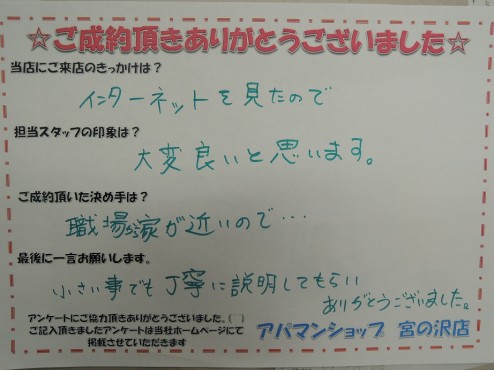 ☆ご成約頂きありがとうございました☆
当店にご来店のきっかけは？
インターネットを見たので
担当スタッフの印象は？
大変良いと思います。
ご成約頂いた決め手は？
職場と家が近いので…
最後に一言お願いします。
小さい事でも丁寧に説明してもらい
ありがとうございました。
アンケートにご協力頂きありがとうございました。
ご記入頂きましたアンケートは当社ホームページにて
掲載させていただきます
アパマンショップ 宮の沢店